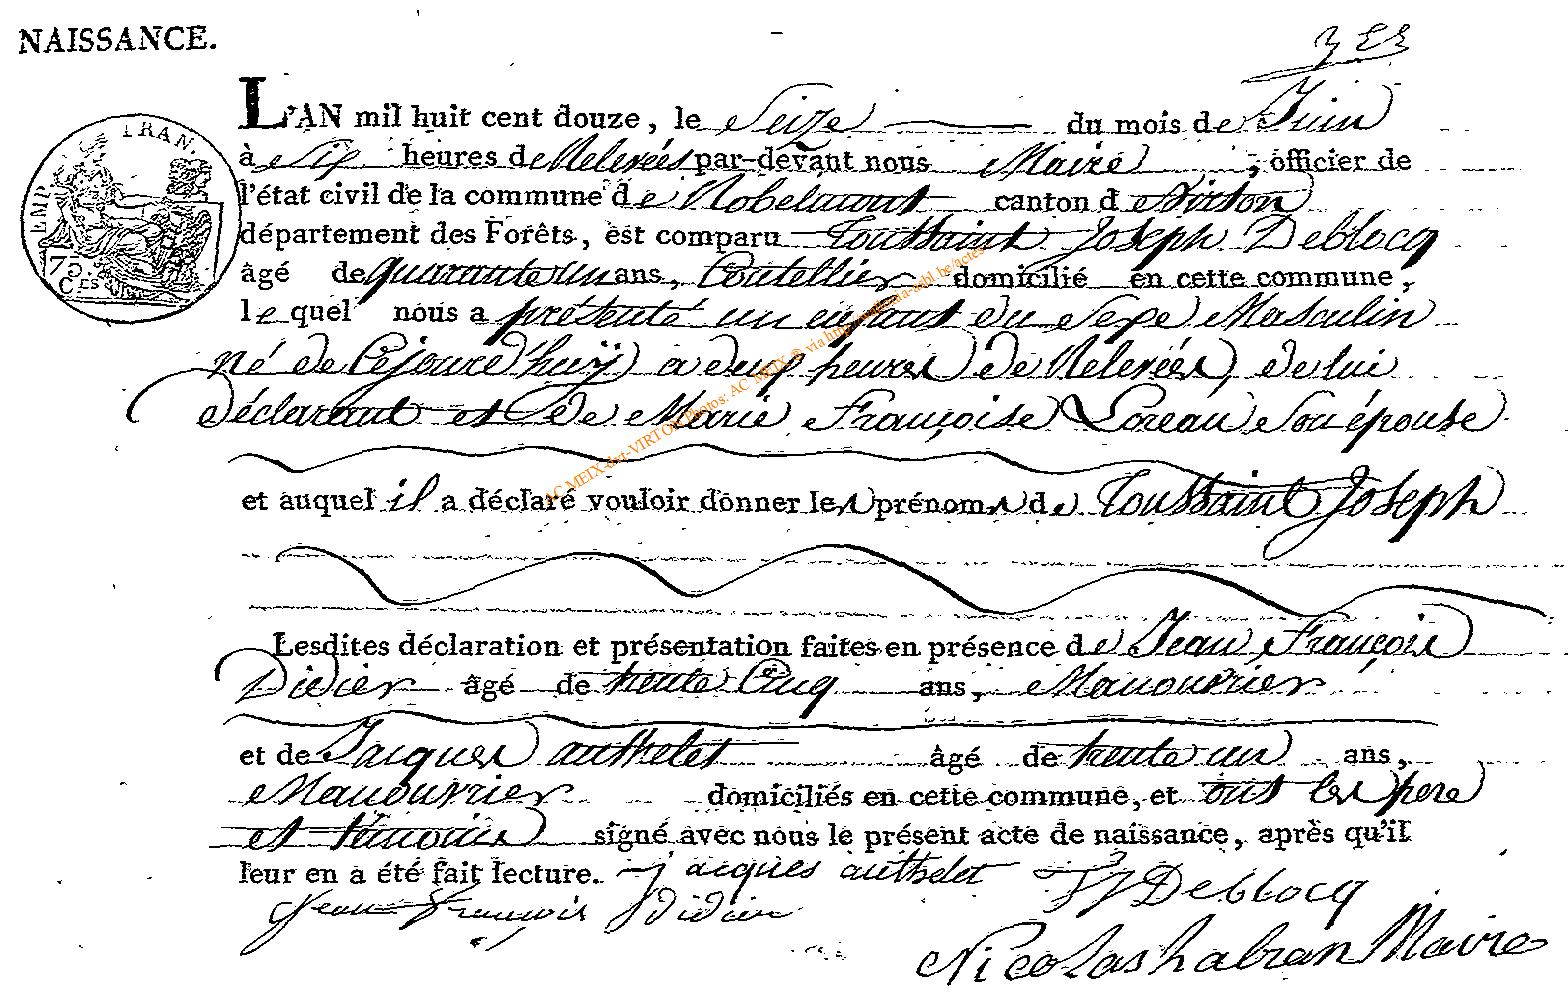 NAISSANCE.
L'AN mil huit cent douze, le Seize du mois de Juin
à Six heures de Relevées par-devant nous Maire, officier de
l'état civil de la commune de Robelmont canton de Virton
département des Forêts, est comparu Toussaint Joseph Deblocq
âgé de quarante un ans, Coutellier domicilié en cette commune,
le quel nous a présenté un enfant du Sexe Masculin
né de Cejourd'huÿ a deux heures de Relevées, de lui
déclarant et de Marie Françoise Loreau Son épouse
et auquel il a déclaré vouloir donner les prénoms de Toussaint Joseph
Lesdites déclaration et présentation faites en présence de Jean François
Didier âgé de trente Cinq ans, Manouvrier
et de Jacques authelet âgé de trente un ans,
Manouvrier domiciliés en cette commune, et ont les pere
et témoins signé avec nous le présent acte de naissance, après qu'il
leur en a été fait lecture. jacques authelet TJ Deblocq
Jean françois Didier
Nicolas habran Maire
EMP. FRAN.
75.
CES
AC MEIX-dvt-VIRTON Photos: AC MEIX © via